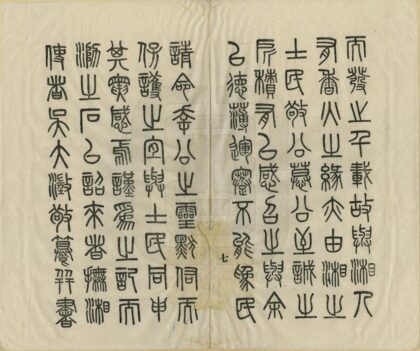 而發之千載故與湘人
有香火之緣亦由湘之
士民敬公慕公至誠之
所積有以感召之與余
以德薄運蹇不能為民
七
請命幸公之靈默而
保護之宜與士民同申
其感焉謹為之記而
泐之石以詔來者撫湘
使者吳大澂敬篆并書